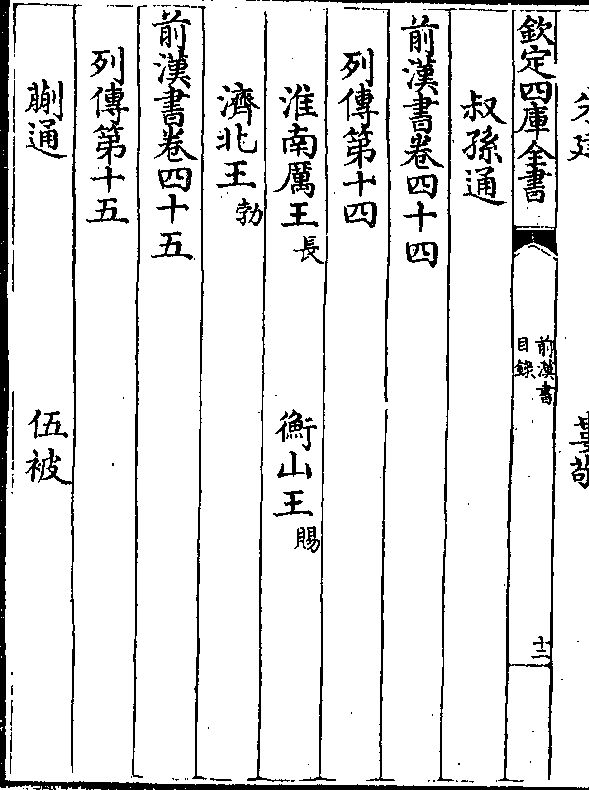 欽定四庫全書
前漢書
目錄
十二
叔孫通
前漢書卷四十四
列傳第十四
淮南厲王長 衡山王賜
濟北王勃
前漢書卷四十五
列傳第十五
蒯通 伍被